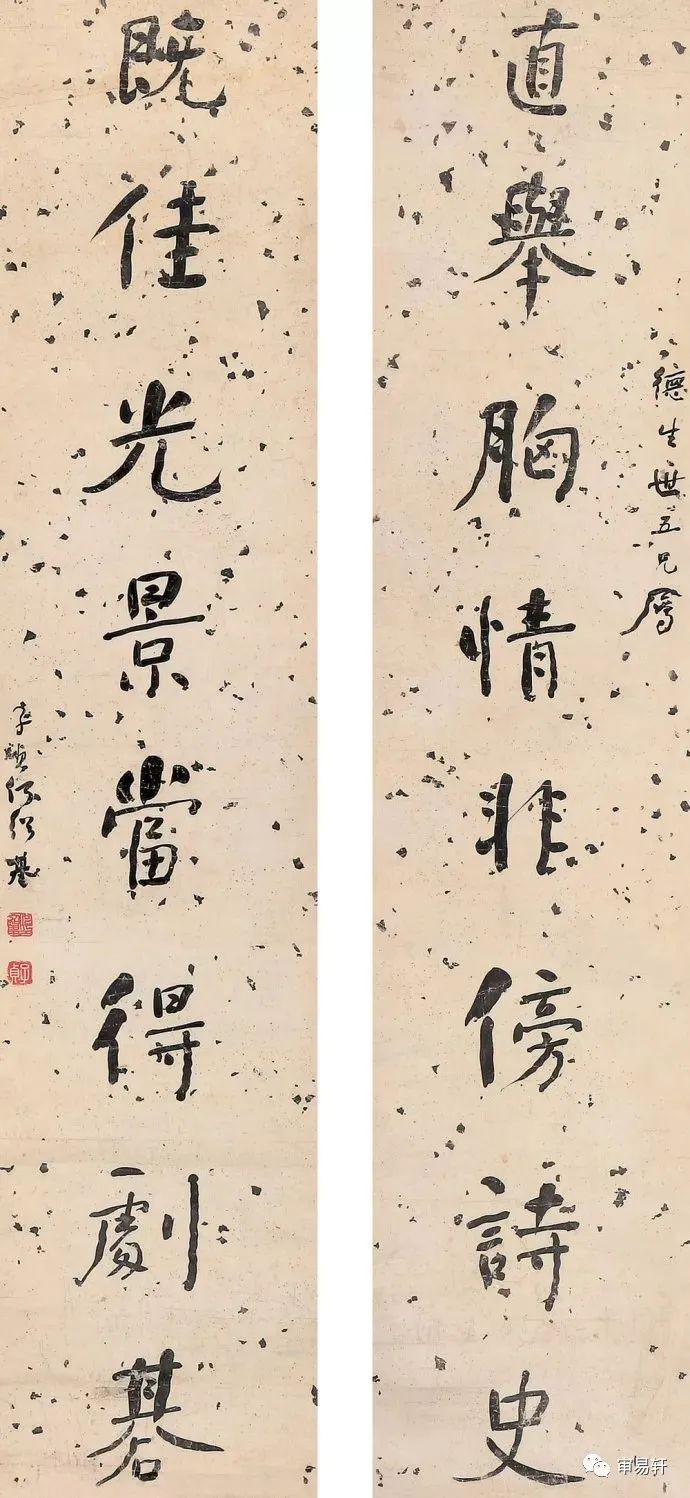 德生世五兄属
直舉胸情非傍詩史
既佳光景當得劇棊
子貞何紹基
审易轩